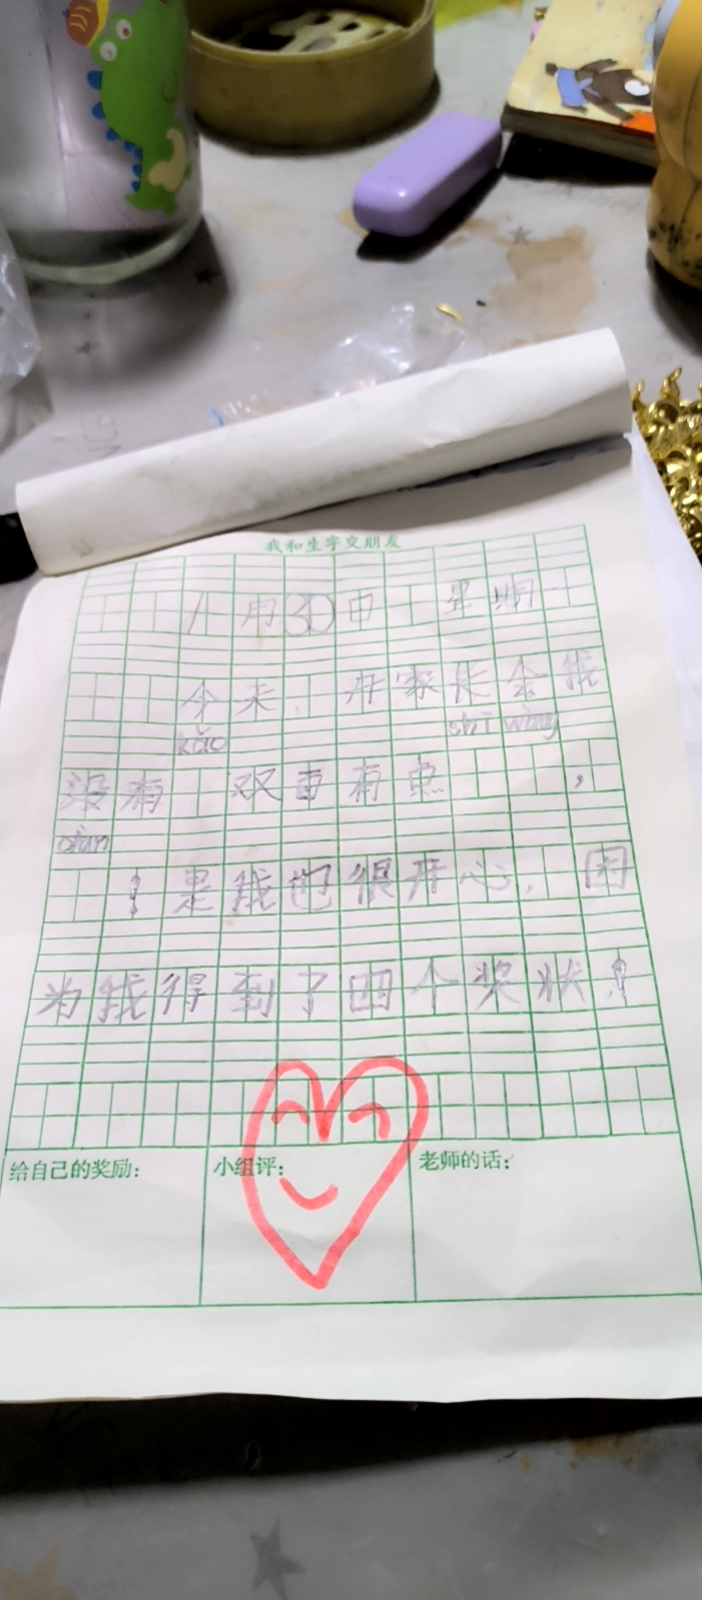 我和生字交朋友
1月30日 星期
今天, 开家长会我
kǎo shī wàng
没有 双百有点 ,
dàn
!是我也很开心, 因
为我得到了四个奖状!
给自己的奖励: 小组评: 老师的话: